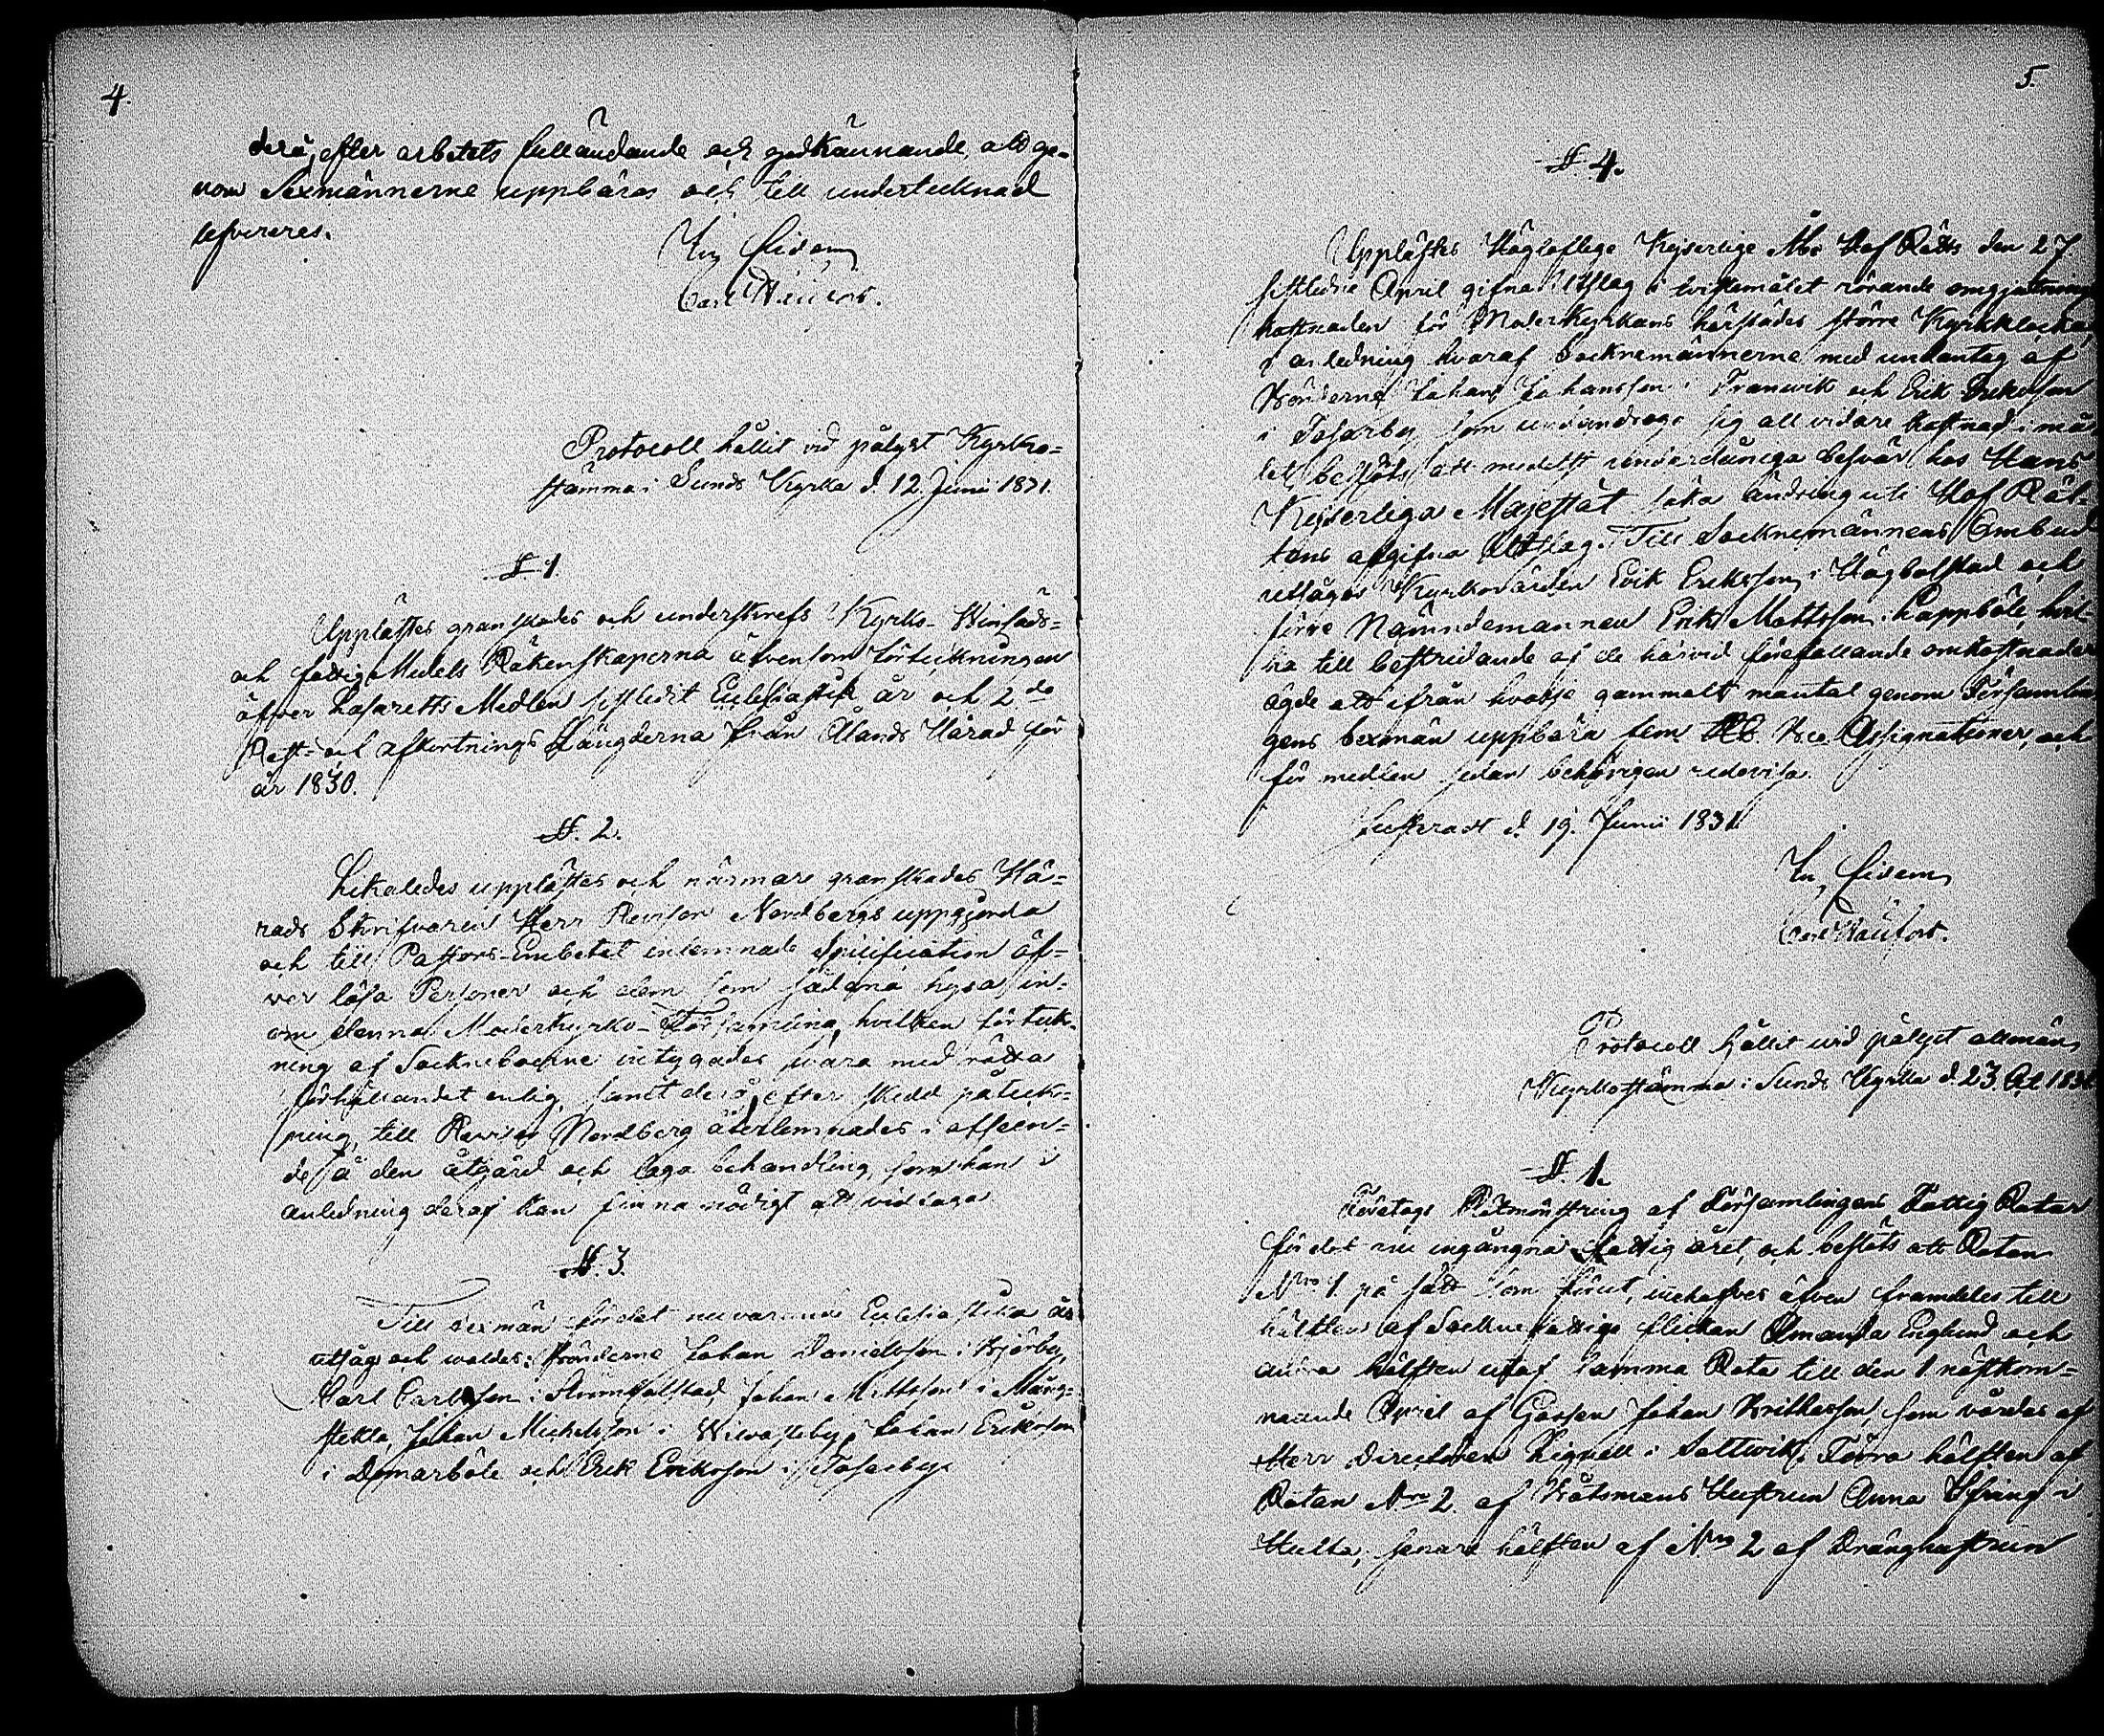 4.
derå, efter arbetets fulländande och godkännande, att ge-
nom Sexmännerne uppbäras och till undertecknad
lefvereras.
In fidem
Carl
Protocoll hållit vid pålyst Kyrko-
stämma i Sunds Kyrka d. 12. Junii 1831.
§ 1.
Upplästes granskades och underskrefs Kyrko- Winsäds-
och fattig Medels Räkenskaperna äfvensom förteckningen
öfver Lasaretts Medlen sistledit Ecclesiastik år och 2do
Rest- och afkortnings Längderna från Ålands Härad för
år 1830.
§. 2.
Likaledes upplästes och närmare granskades Hä-
rads Skrifvaren Herr Revisor Nordbergs uppgjorda
och till Pastors-Embetet inlemnade Specification öf-
ver lösa Personer och dem som sådana hysa in-
om denna Moderkyrko-Församling, hvilken förteck-
ning af Sockneboerne intygades vara med rätta
förhållandet enlig, samt derå, efter skedd påteck-
ning, till Revisor Nordberg återlemnades i afseen-
de å den åtgärd och laga behandling, som han i
anledning deraf kan finna nödigt att vidtaga
§. 3.
Till Sexmän för det nuvarande Ecclesiastika år
utsågs och valdes: Bönderne Johan Danielsson i Bjärby,
Carl Carlsson i Strömbolstad, Johan Mattsson i Mång-
stekta, Johan Michelsson i Wivasteby, Johan Eriksson
i Domarböle och Erik Eriksson i Tosarby
5.
§. 4.
Upplästes Högloflige Kejserlige Åbo Hof Rätts den 27.
sistledne April gifna Utslag i tvistemålet rörande omgjutnings
kostnaden för Moderkyrkans härstädes större Kyrkklocka,
i anledning hvaraf Socknemännerne med undantag af
Bönderne Johan Johansson i Tranvik och Erik Eriksson
i Tosarby som undandrogo sig all vidare kostnad i må-
let, beslöts att medelst underdåniga besvär hos Hans
Kejserliga Majestät söka ändring uti Hof Rät-
tens afgifna Utslag. Till Socknemännens Ombud
utsågos Kyrkovärden Erik Eriksson i Högbolstad och
förre Nämndemannen Erik Mattsson i Kappböle, hvil-
ka till bestridande af de härvid förefallande omkostnader
ägde att ifrån hvarje gammalt mantal genom Församlin-
gens Sexmän uppbära fem Rb. B:co Assignationer, och
för medlen sedan behörigen redovisa.
Justeradt d. 19. Junii 1831.
In fidem
Carl
Protocoll hållit vid pålyst allmän
Kyrkostämma i Sunds Kyrka d. 23 Oct. 1831
§. 1.
Företogs Rotmönstring af Församlingens Fattig Rotar
för det nu ingångna fattig året, och beslöts att Rotan
Nro 1 på sätt som förut, innehafves äfven framdeles till
hälften af Sockne fattiga flickan Amanda Englund och
andra hälften utaf samma Rota till den 1. nästkom-
mande April af Gossen Johan Willersson, som vårdas af
Herr Directoren Lignell i Saltvik. Förra hälften af
Rotan Nro 2. af Båtsmans Hustrun Anna Sfring i
Hulta, senare hälften af Nro 2 af Dränghustrun